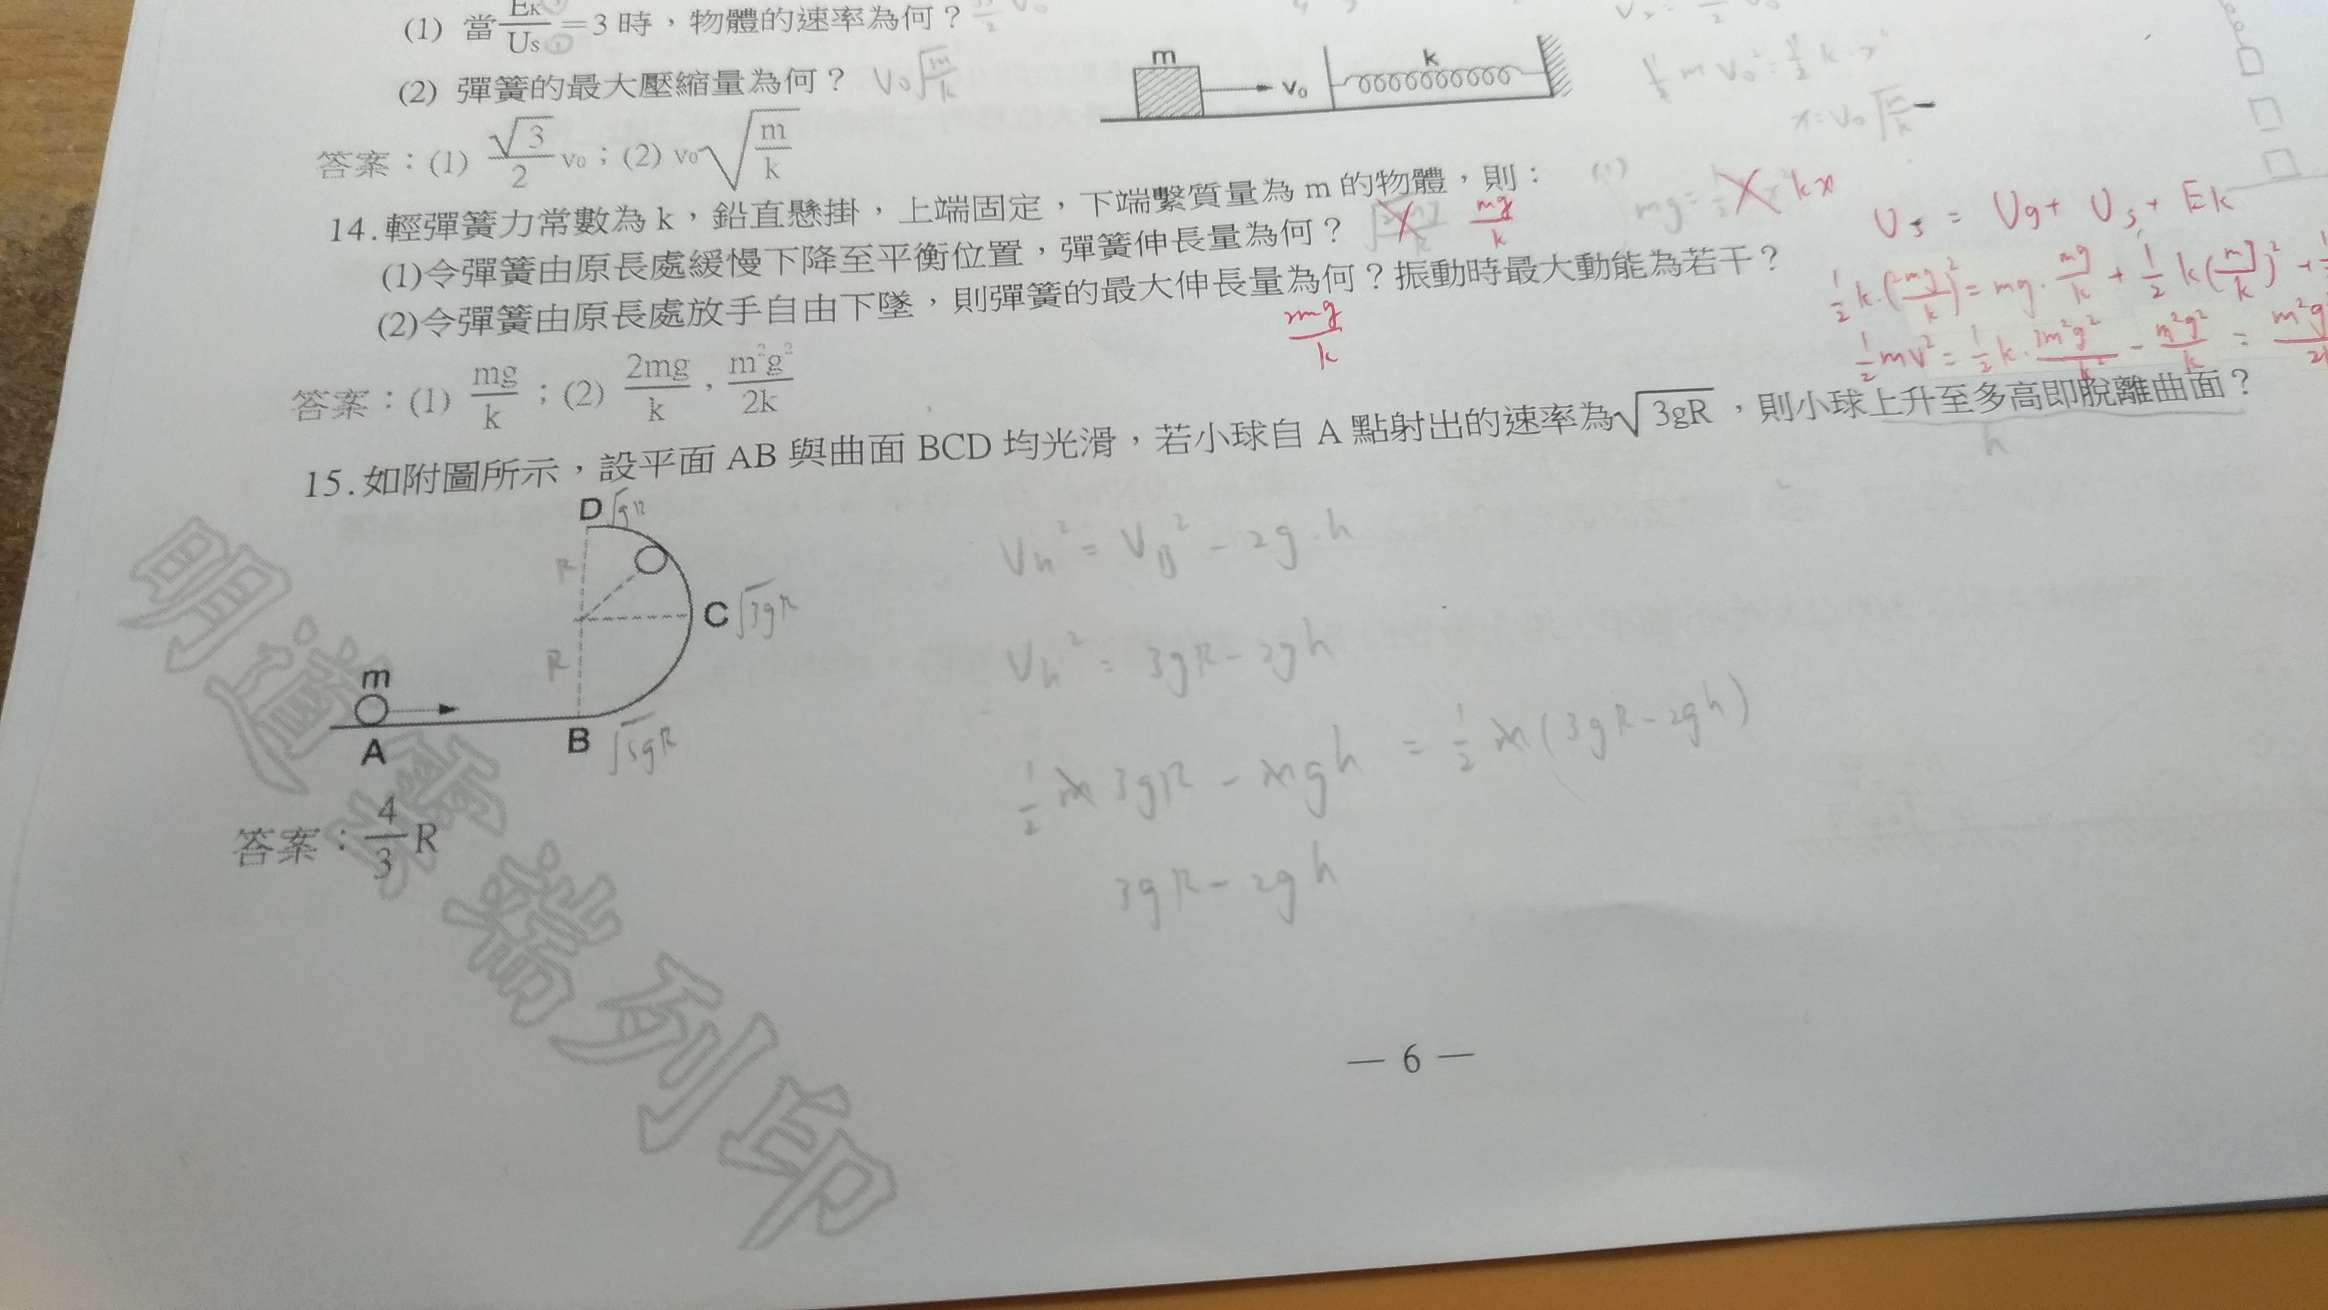 (1) 當 Eĸ/Us =3 時，物體的速率為何？
(2) 彈簧的最大壓縮量為何？ V₀√(m/k)
m v₀ k
½ m V₀² = ½ k x²
x = V₀ √(m/k)
答案：(1) √3/2 v₀；(2) v₀√(m/k)
14.輕彈簧力常數為 k，鉛直懸掛，上端固定，下端繫質量為 m 的物體，則：
(1)令彈簧由原長處緩慢下降至平衡位置，彈簧伸長量為何？ mg/k
(1) mg = kx
(2)令彈簧由原長處放手自由下墜，則彈簧的最大伸長量為何？振動時最大動能為若干？
2mg/k
Us = Ug + Us + Ek
½k·(2mg/k)² = mg·mg/k + ½k(mg/k)² +
½mv² = ½k· - m²g²/k =
答案：(1) mg/k；(2) 2mg/k，m²g²/2k
15.如附圖所示，設平面 AB 與曲面 BCD 均光滑，若小球自 A 點射出的速率為√3gR，則小球上升至多高即脫離曲面？
h
D √gR
R
C √3gR
R
m
A
B √5gR
Vh² = VB² - 2g·h
Vh² = 3gR - 2gh
½ m 3gR - mgh = ½ m (3gR - 2gh)
3gR - 2gh
答案：4/3 R
明道
列印
— 6 —